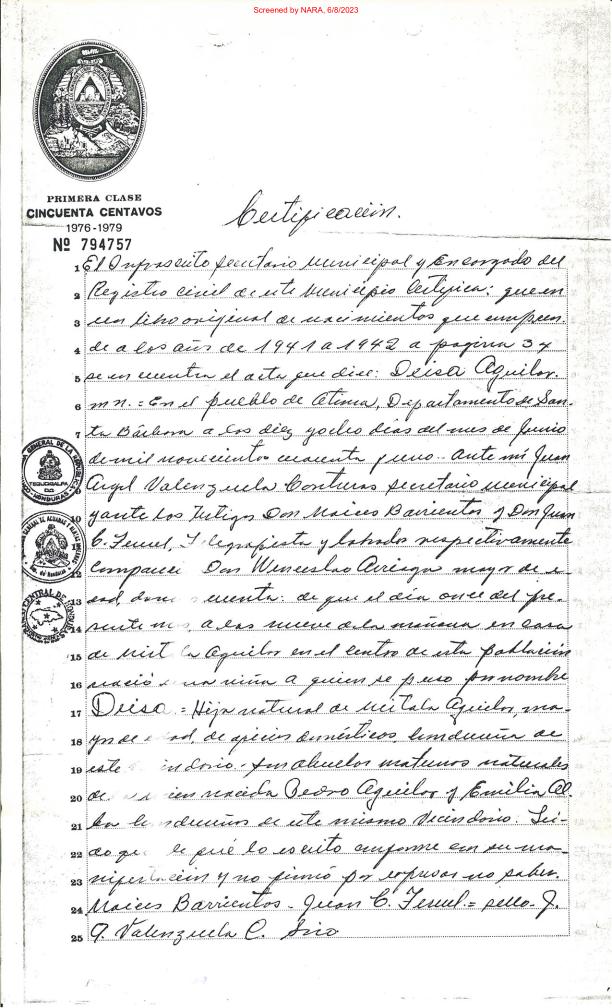 Screened by NARA, 6/8/2023
PRIMERA CLASE
CINCUENTA CENTAVOS
1976-1979
Nº 794757
Certificación.
1 El Infrascrito Secretario Municipal y Encargado del
2 Registro civil de este Municipio Certifica: que en
3 un libro original de nacimientos que compren-
4 de a los años de 1941 a 1942 a pagina 34
5 se encuentra el acta que dice: Deisa Aguilar.
6 = En el pueblo de Atima, Departamento de San-
7 ta Bárbara a los diez y ocho dias del mes de Junio
de mil novecientos cuarenta y uno. Ante mi Juan
Angl Valenzuela Contreras Secretario Municipal
10 y ante los Testigos Don Moices Barrientos y Don Juan
C. Telegrafista y labrador respectivamente
12 Don Wenceslao Arriaga mayor de e-
13 dad, cuenta: de que el dia once del pre-
14 sente a las nueve de la mañana en casa
15 de Aguilar en el centro de esta población
16 nació na niña a quien se puso por nombre
17 Deisa = Hija natural de Aguilar, ma-
18 yor de ad, de oficios domésticos, hondureña de
19 este indario. Sus abuelos maternos naturales
20 de cien nacida Pedro Aguilar y Emilia Al-
21 ba dureños de este mismo Vecindario. Lei-
22 do q le fué lo escrito conforme con su ma-
23 nifestación y no firmó por expresar no saber.
24 Moices Barrientos. Juan C. = sello. J.
25 A. Valenzuela C. Srio
TEGUCIGALPA
HONDURAS